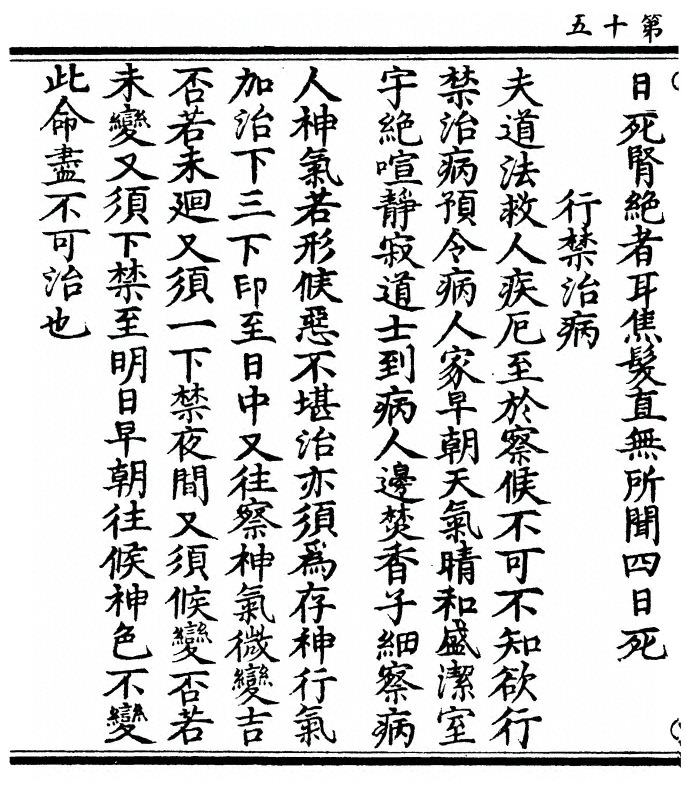 第十五
日死腎絶者耳焦髮直無所聞四日死
行禁治病
夫道法救人疾厄至於察候不可不知欲行
禁治病預令病人家早朝天氣晴和盛潔室
宇絶喧靜寂道士到病人邊焚香子細察病
人神氣若形候惡不堪治亦須為存神行氣
加治下三下印至日中又往察神氣微變吉
否若未廻又須一下禁夜間又須候變否若
未變又須下禁至明日早朝往候神色不變
此命盡不可治也